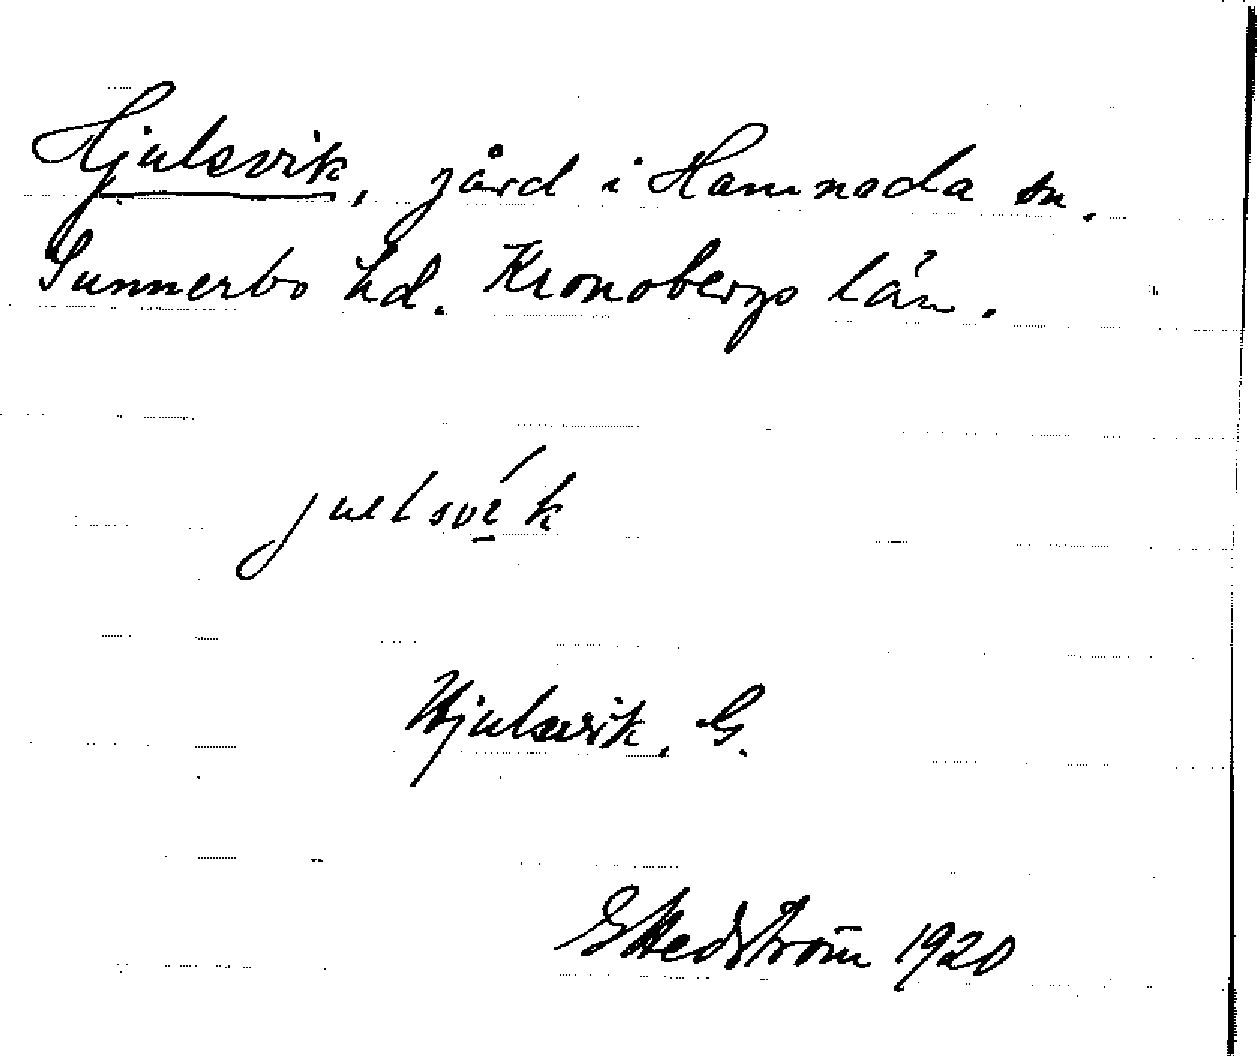 Hjulsvik, gård i Hamneda sn.
Sunnerbo hd. Kronobergs län.
julsvik
Hjulsvik. G.
G Hedström 1920